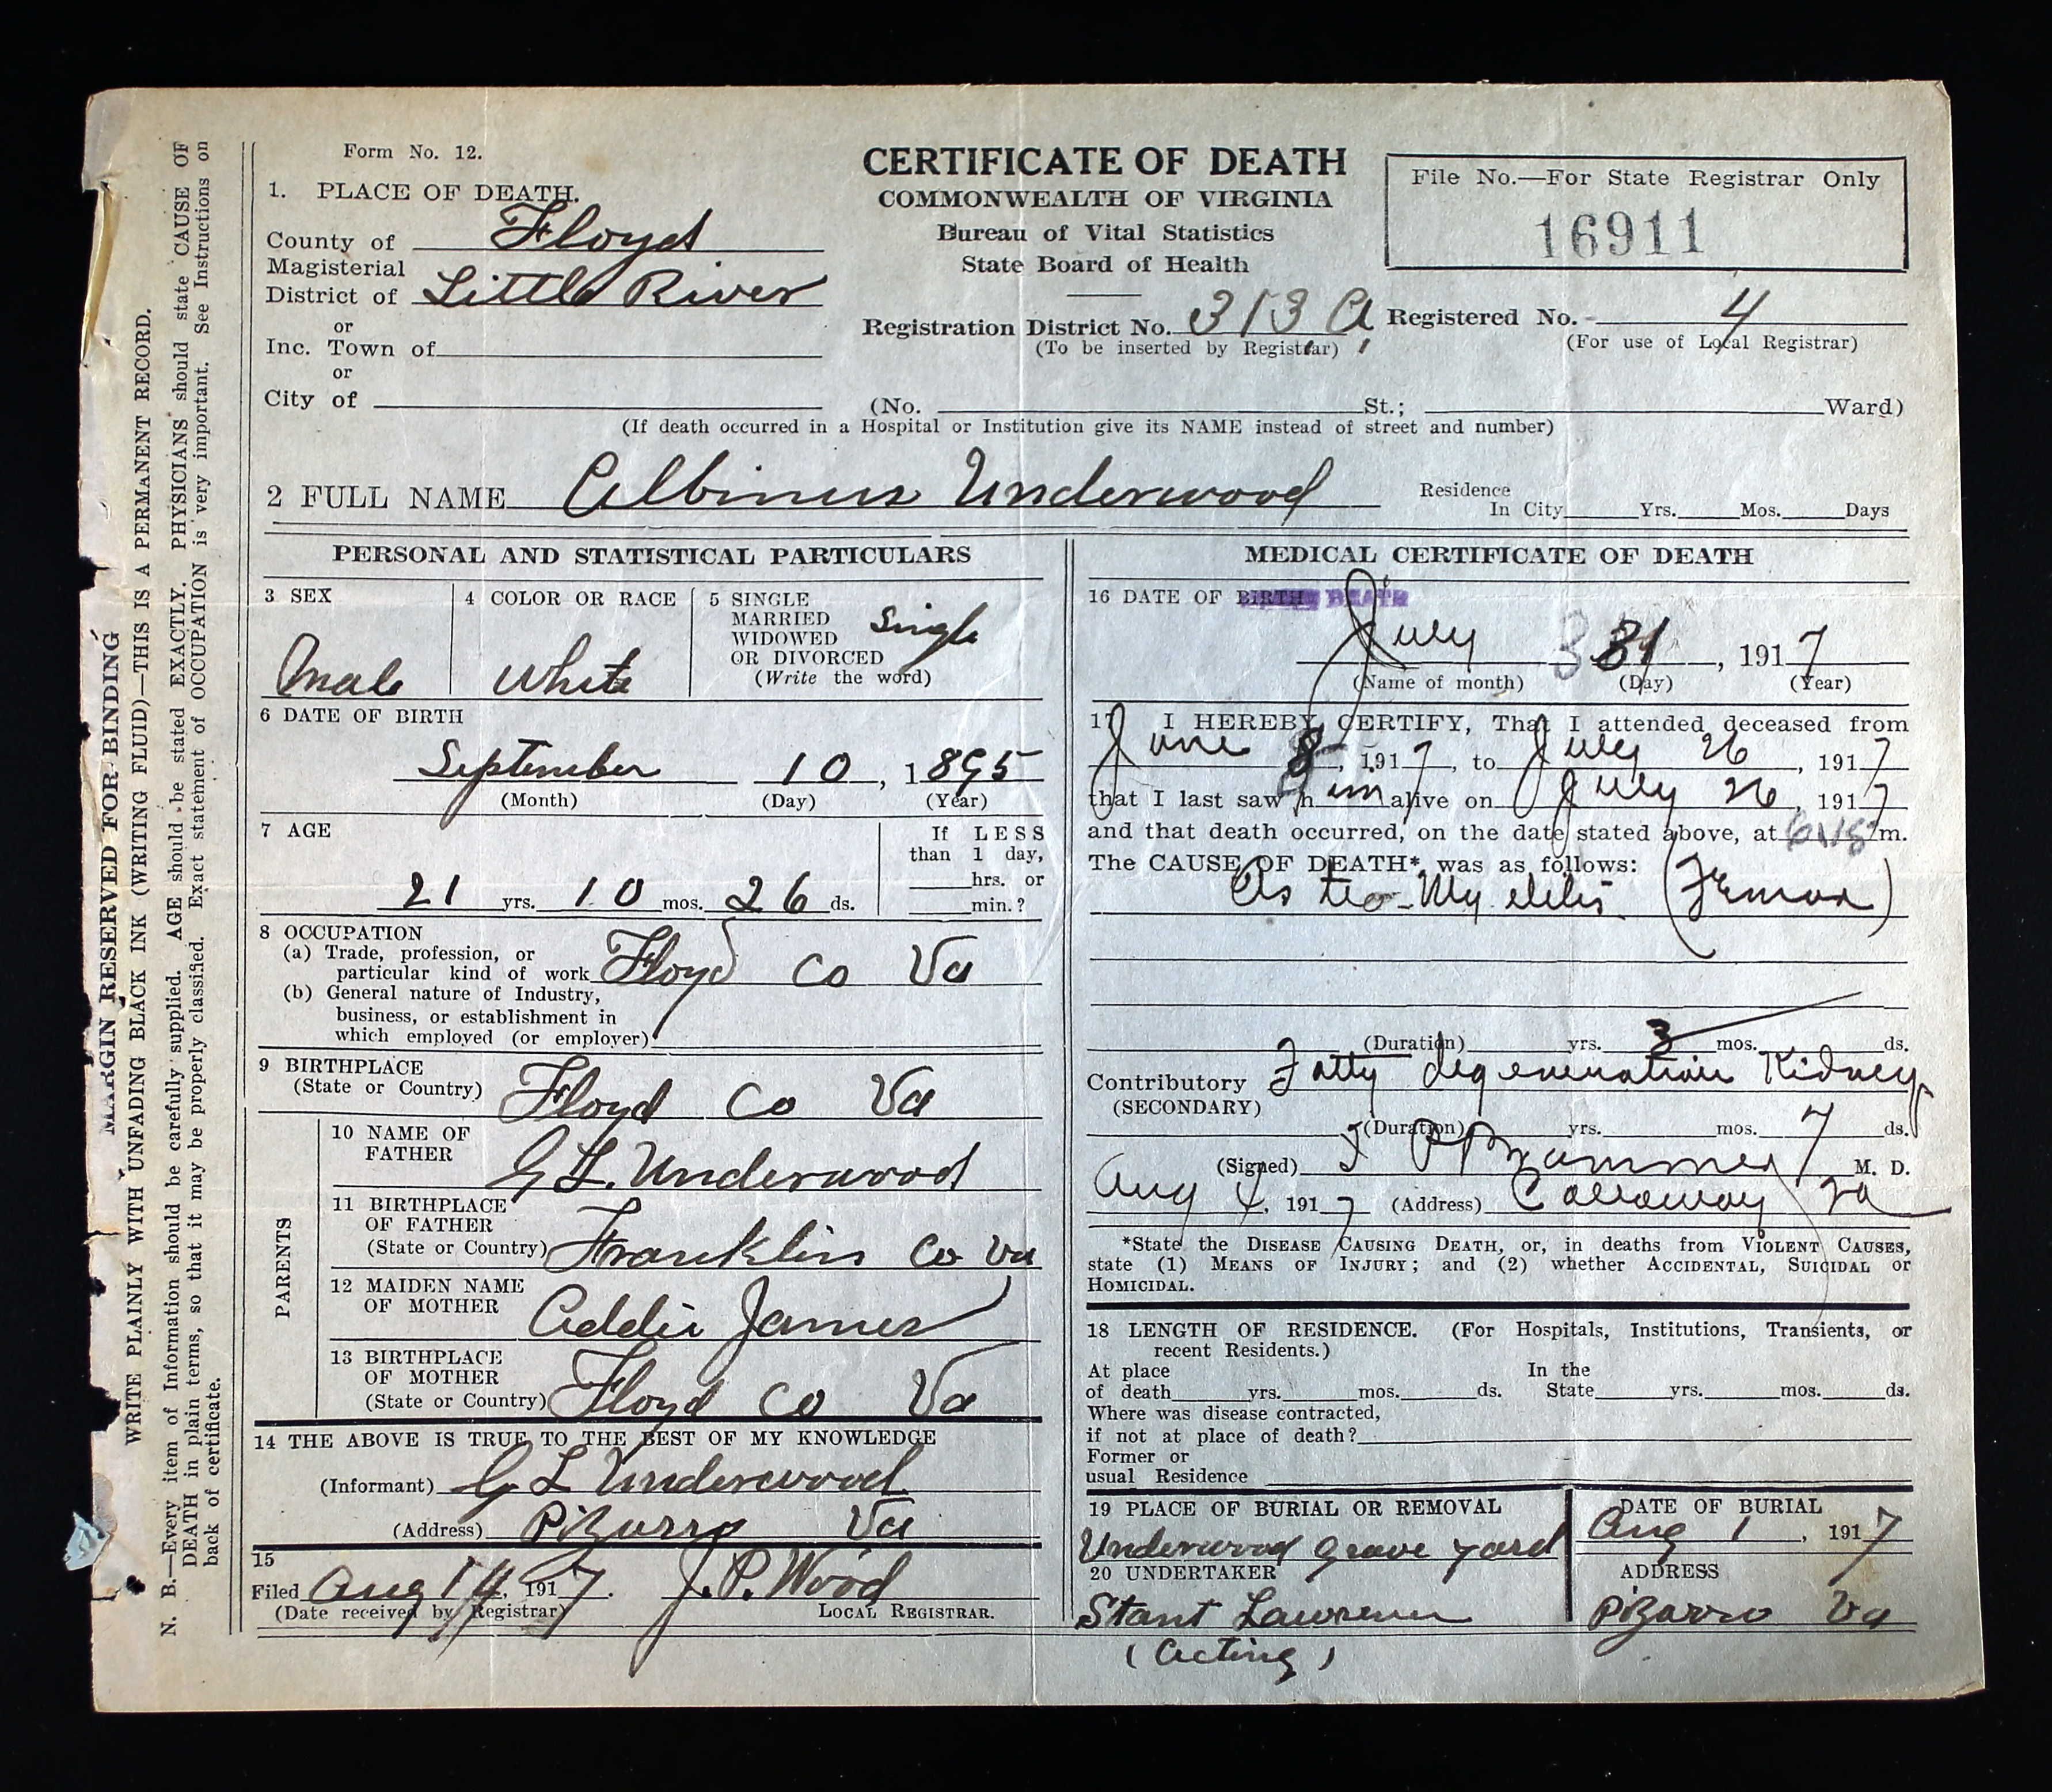 MARGIN RESERVED FOR BINDING
WRITE PLAINLY WITH UNFADING BLACK INK (WRITING FLUID)—THIS IS A PERMANENT RECORD.
N. B.—Every item of Information should be carefully supplied. AGE should be stated EXACTLY. PHYSICIANS should state CAUSE OF
DEATH in plain terms, so that it may be properly classified. Exact statement of OCCUPATION is very important. See Instructions on
back of certificate.
Form No. 12.
CERTIFICATE OF DEATH
COMMONWEALTH OF VIRGINIA
Bureau of Vital Statistics
State Board of Health
File No.—For State Registrar Only
16911
1. PLACE OF DEATH.
County of Floyd
Magisterial
District of Little River
or
Inc. Town of
or
City of
Registration District No. 313 A
(To be inserted by Registrar)
Registered No. 4
(For use of Local Registrar)
(No. St.; Ward)
(If death occurred in a Hospital or Institution give its NAME instead of street and number)
2 FULL NAME Albinus Underwood
Residence
In City Yrs. Mos. Days
PERSONAL AND STATISTICAL PARTICULARS
3 SEX
Male
4 COLOR OR RACE
White
5 SINGLE
MARRIED
WIDOWED
OR DIVORCED
(Write the word)
Single
6 DATE OF BIRTH
September 10, 1895
(Month) (Day) (Year)
7 AGE
21 yrs. 10 mos. 26 ds.
If LESS
than 1 day,
hrs. or
min.?
8 OCCUPATION
(a) Trade, profession, or
particular kind of work Floyd Co Va
(b) General nature of Industry,
business, or establishment in
which employed (or employer)
9 BIRTHPLACE
(State or Country) Floyd Co Va
PARENTS
10 NAME OF
FATHER G L. Underwood
11 BIRTHPLACE
OF FATHER
(State or Country) Franklin Co Va
12 MAIDEN NAME
OF MOTHER Addie James
13 BIRTHPLACE
OF MOTHER
(State or Country) Floyd Co Va
14 THE ABOVE IS TRUE TO THE BEST OF MY KNOWLEDGE
(Informant) G L Underwood
(Address) Pizarro Va
15
Filed Aug 14, 1917. J. P. Wood
(Date received by Registrar) LOCAL REGISTRAR.
MEDICAL CERTIFICATE OF DEATH
16 DATE OF BIRTH DEATH
July 31, 1917
(Name of month) (Day) (Year)
17 I HEREBY CERTIFY, That I attended deceased from
June 8, 1917, to July 26, 1917
that I last saw him alive on July 26, 1917
and that death occurred, on the date stated above, at m.
The CAUSE OF DEATH* was as follows:
Osteo-Myelitis (Femur)
(Duration) yrs. 3 mos. ds.
Contributory Fatty degeneration Kidneys
(SECONDARY)
(Duration) yrs. mos. 7 ds.
(Signed) J P Brammer M. D.
Aug 4, 1917 (Address) Callaway Va
*State the DISEASE CAUSING DEATH, or, in deaths from VIOLENT CAUSES,
state (1) MEANS OF INJURY; and (2) whether ACCIDENTAL, SUICIDAL or
HOMICIDAL.
18 LENGTH OF RESIDENCE. (For Hospitals, Institutions, Transients, or
recent Residents.)
At place In the
of death yrs. mos. ds. State yrs. mos. ds.
Where was disease contracted,
if not at place of death?
Former or
usual Residence
19 PLACE OF BURIAL OR REMOVAL
Underwood Grave yard
DATE OF BURIAL
Aug 1, 1917
20 UNDERTAKER
Stant Lawrence
(Acting)
ADDRESS
Pizarro Va